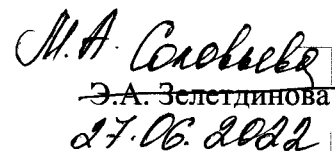 М.А. Соловьева
Э.А. Зелетдинова
27.06.2022